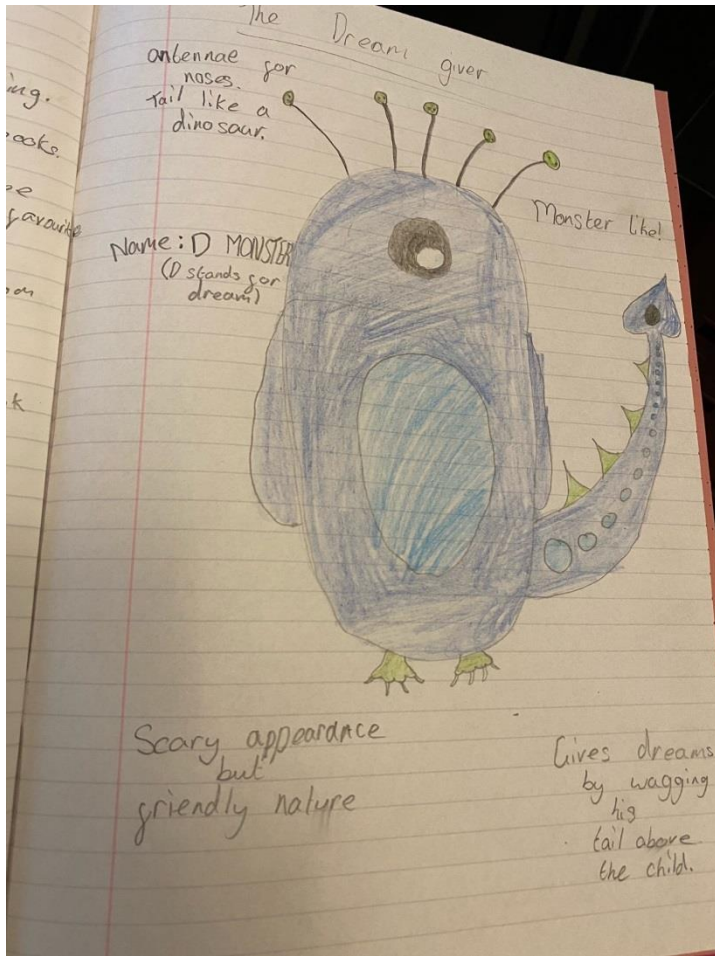 The Dream giver
antennae for
noses.
Tail like a
dinosaur.
Monster like!
Name: D MONSTER
(D stands for
dream)
Scary appearance
but
friendly nature
Gives dreams
by wagging
his
tail above
the child.
ing.
ooks.
favourite